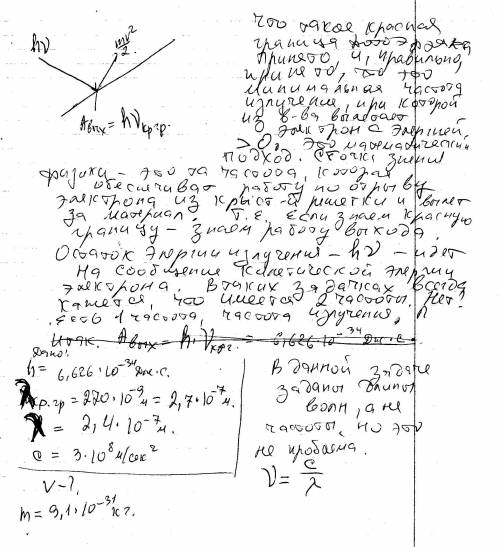 Что такое красная
граница
принято, и, правильно,
принято, что это
минимальная частота
излучение, при которой
из в-ва вылетает
электрон с энергией
> 0. Это математический
подход. С точки зрения
физики - это та частота, которая
обеспечивает работу по отрыву
электрона из крист-й решетки и вылет
за материал. Т.е. если знаем красную
границу - знаем работу выхода.
Остаток энергии излучения - hν - идет
на сообщение кинетической энергии
электрона. В таких задачках всегда
кажется, что имеется 2 частоты. Нет!
Есть 1 частота, частота излучения,
hν
mv²/2
Aвых = hνкр.гр.
Итак. Aвых = h·νкр.г. = 6,626·10⁻³⁴ Дж·с.
Дано:
h = 6,626·10⁻³⁴ Дж·с.
λкр.гр = 270·10⁻⁹м = 2,7·10⁻⁷м.
λ = 2,4·10⁻⁷м.
c = 3·10⁸ м/сек²
V - ?
m = 9,1·10⁻³¹ кг.
В данной задаче
заданы длины
волн, а не
частоты, но это
не проблема.
ν = c/λ